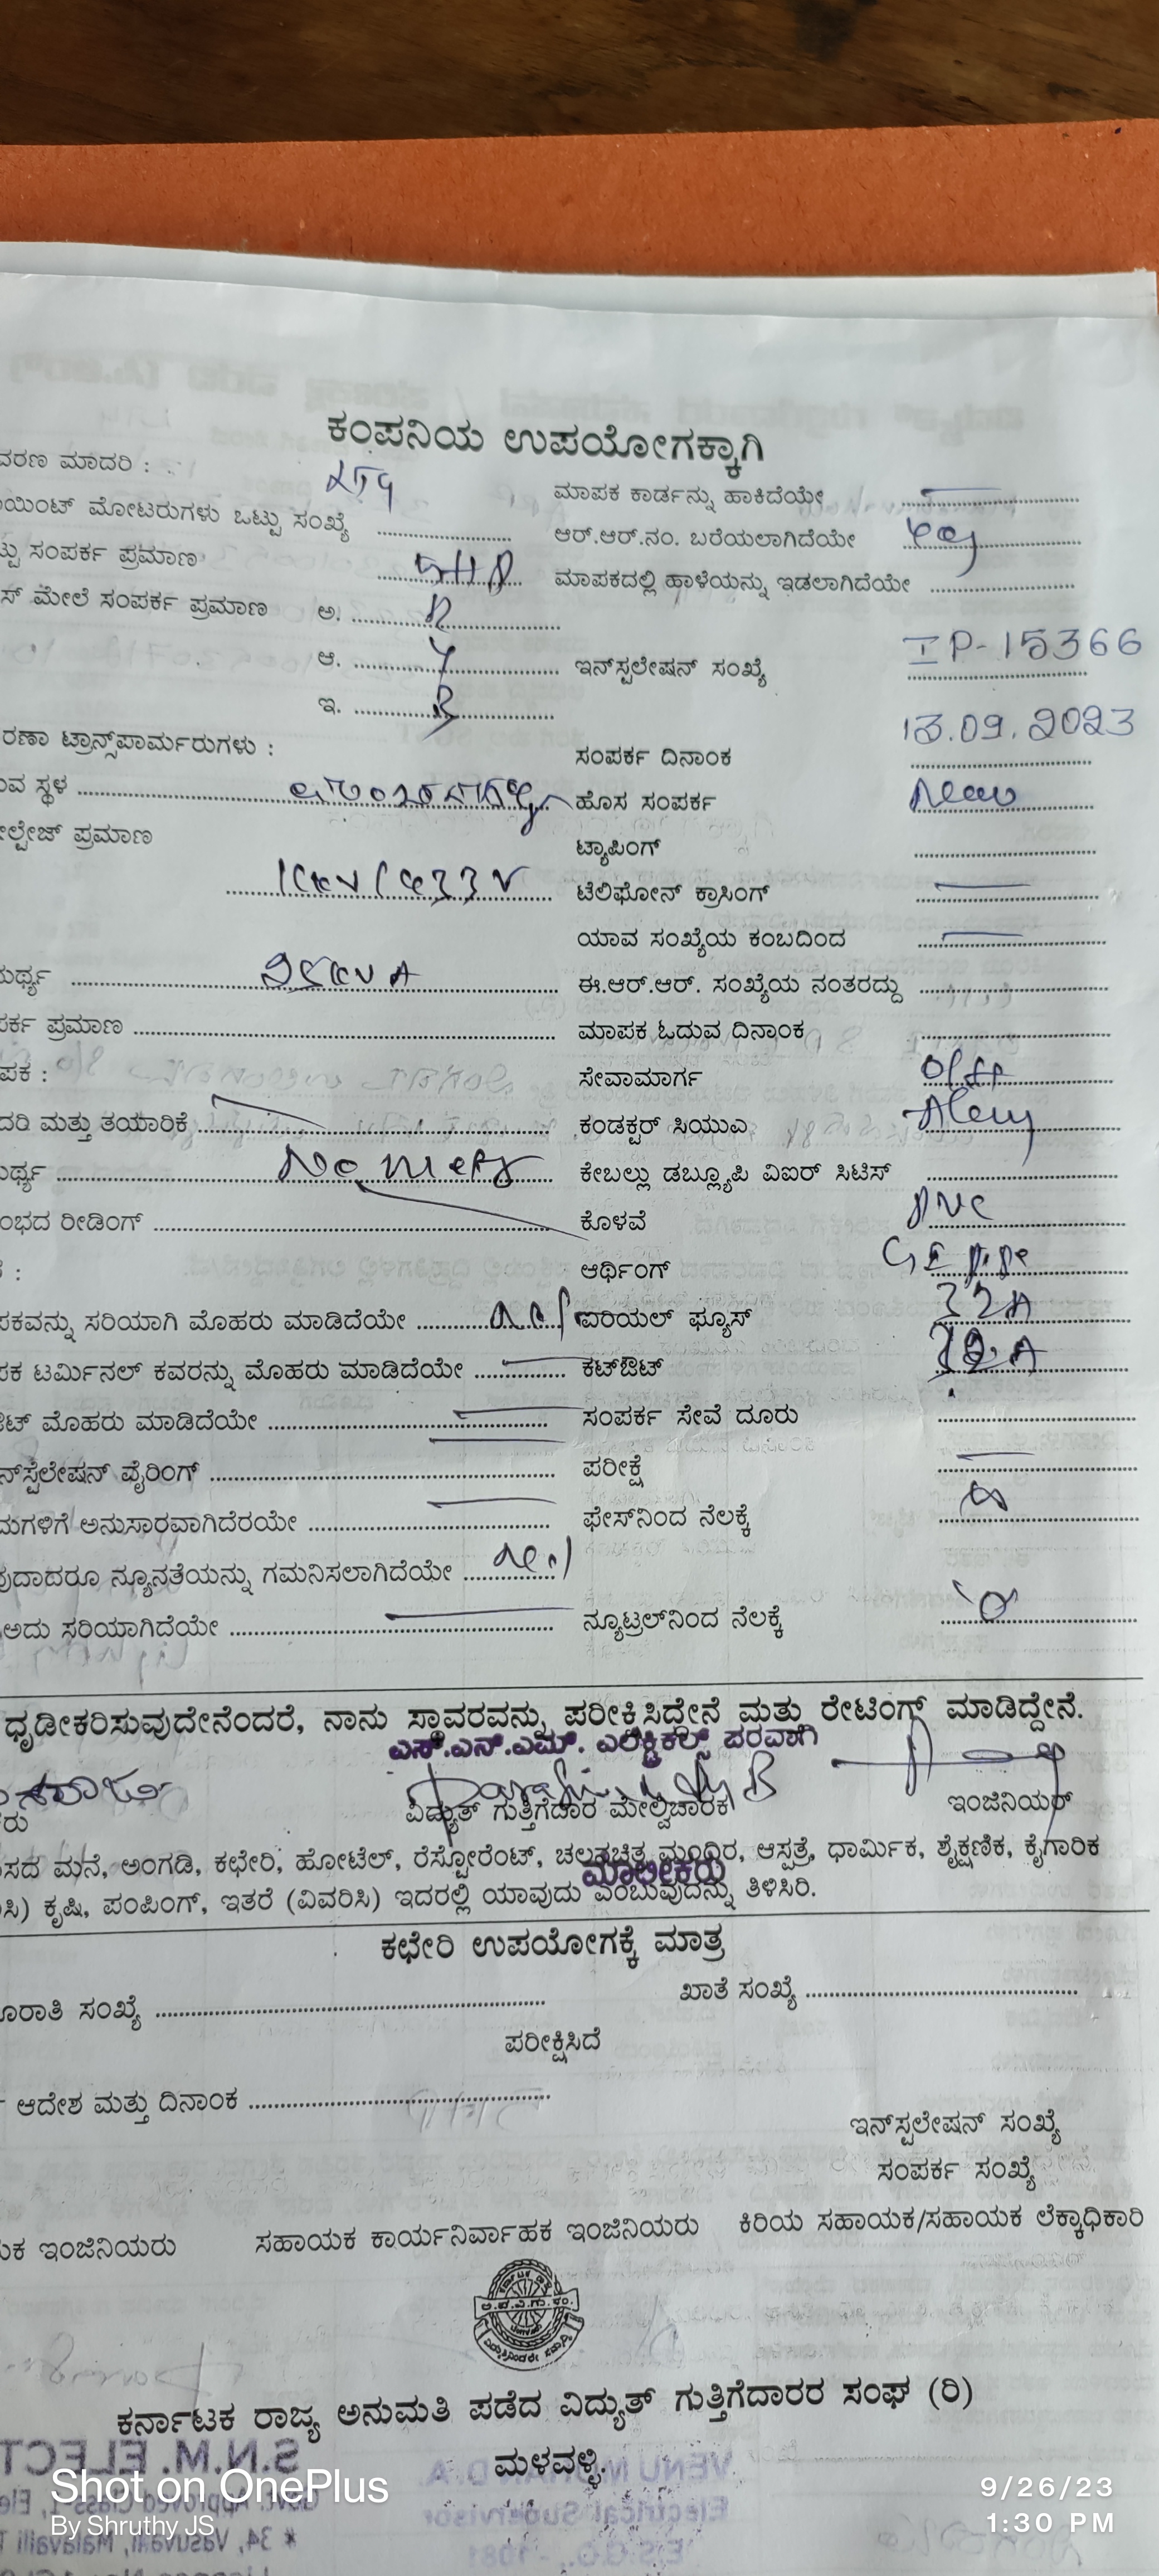 ಕಂಪನಿಯ ಉಪಯೋಗಕ್ಕಾಗಿ
ವರಣ ಮಾದರಿ :
ಮಾಪಕ ಕಾರ್ಡನ್ನು ಹಾಕಿದೆಯೇ
ಯಿಂಟ್ ಮೋಟರುಗಳು ಒಟ್ಟು ಸಂಖ್ಯೆ
ಆರ್.ಆರ್.ನಂ. ಬರೆಯಲಾಗಿದೆಯೇ
ಟ್ಟು ಸಂಪರ್ಕ ಪ್ರಮಾಣ 5HP
ಮಾಪಕದಲ್ಲಿ ಹಾಳೆಯನ್ನು ಇಡಲಾಗಿದೆಯೇ
ಸ್ ಮೇಲೆ ಸಂಪರ್ಕ ಪ್ರಮಾಣ ಅ. R
ಆ. Y ಇನ್‌ಸ್ಟಲೇಷನ್ ಸಂಖ್ಯೆ IP-15366
ಇ. B
ರಣಾ ಟ್ರಾನ್ಸ್‌ಪಾರ್ಮರುಗಳು :
ಸಂಪರ್ಕ ದಿನಾಂಕ 13.09.2023
ವ ಸ್ಥಳ
ಹೊಸ ಸಂಪರ್ಕ New
ಲ್ಟೇಜ್ ಪ್ರಮಾಣ
ಟ್ಯಾಪಿಂಗ್
11KV/433V
ಟೆಲಿಫೋನ್ ಕ್ರಾಸಿಂಗ್
ಯಾವ ಸಂಖ್ಯೆಯ ಕಂಬದಿಂದ
ಮರ್ಥ್ಯ 25KVA
ಈ.ಆರ್.ಆರ್. ಸಂಖ್ಯೆಯ ನಂತರದ್ದು
ಪರ್ಕ ಪ್ರಮಾಣ
ಮಾಪಕ ಓದುವ ದಿನಾಂಕ
ಪಕ :
ಸೇವಾಮಾರ್ಗ O/H
ದರಿ ಮತ್ತು ತಯಾರಿಕೆ
ಕಂಡಕ್ಟರ್ ಸಿಯುಎ
ಮರ್ಥ್ಯ No meter
ಕೇಬಲ್ಲು ಡಬ್ಲ್ಯೂಪಿ ವಿಐರ್ ಸಿಟಿಸ್
ಂಭದ ರೀಡಿಂಗ್
ಕೊಳವೆ PVC
ಆರ್ಥಿಂಗ್ GI pipe
ಪಕವನ್ನು ಸರಿಯಾಗಿ ಮೊಹರು ಮಾಡಿದೆಯೇ
ಏರಿಯಲ್ ಫ್ಯೂಸ್ 32A
ಪಕ ಟರ್ಮಿನಲ್ ಕವರನ್ನು ಮೊಹರು ಮಾಡಿದೆಯೇ
ಕಟ್‌ಔಟ್ 32A
ಟ್ ಮೊಹರು ಮಾಡಿದೆಯೇ
ಸಂಪರ್ಕ ಸೇವೆ ದೂರು
ನ್‌ಸ್ಟೆಲೇಷನ್ ವೈರಿಂಗ್
ಪರೀಕ್ಷೆ
ಮಗಳಿಗೆ ಅನುಸಾರವಾಗಿದೆರಯೇ
ಫೇಸ್‌ನಿಂದ ನೆಲಕ್ಕೆ
ವುದಾದರೂ ನ್ಯೂನತೆಯನ್ನು ಗಮನಿಸಲಾಗಿದೆಯೇ
ಅದು ಸರಿಯಾಗಿದೆಯೇ
ನ್ಯೂಟ್ರಲ್‌ನಿಂದ ನೆಲಕ್ಕೆ
ಧೃಡೀಕರಿಸುವುದೇನೆಂದರೆ, ನಾನು ಸ್ಥಾವರವನ್ನು ಪರೀಕ್ಷಿಸಿದ್ದೇನೆ ಮತ್ತು ರೇಟಿಂಗ್ ಮಾಡಿದ್ದೇನೆ.
ಎಸ್.ಎನ್.ಎಮ್. ಎಲೆಕ್ಟ್ರಿಕಲ್ಸ್ ಪರವಾಗಿ
ರು ವಿದ್ಯುತ್ ಗುತ್ತಿಗೆದಾರ ಮೇಲ್ವಿಚಾರಕ ಇಂಜಿನಿಯರ್
ಸದ ಮನೆ, ಅಂಗಡಿ, ಕಛೇರಿ, ಹೋಟೆಲ್, ರೆಸ್ಟೋರೆಂಟ್, ಚಲನಚಿತ್ರ ಮಂದಿರ, ಆಸ್ಪತ್ರೆ, ಧಾರ್ಮಿಕ, ಶೈಕ್ಷಣಿಕ, ಕೈಗಾರಿಕ
ಮಾಲೀಕರು
ಸಿ) ಕೃಷಿ, ಪಂಪಿಂಗ್, ಇತರೆ (ವಿವರಿಸಿ) ಇದರಲ್ಲಿ ಯಾವುದು ಎಂಬುವುದನ್ನು ತಿಳಿಸಿರಿ.
ಕಛೇರಿ ಉಪಯೋಗಕ್ಕೆ ಮಾತ್ರ
ೂರಾತಿ ಸಂಖ್ಯೆ ಖಾತೆ ಸಂಖ್ಯೆ
ಪರೀಕ್ಷಿಸಿದೆ
ಆದೇಶ ಮತ್ತು ದಿನಾಂಕ
ಇನ್‌ಸ್ಟಲೇಷನ್ ಸಂಖ್ಯೆ
ಸಂಪರ್ಕ ಸಂಖ್ಯೆ
ಯಕ ಇಂಜಿನಿಯರು ಸಹಾಯಕ ಕಾರ್ಯನಿರ್ವಾಹಕ ಇಂಜಿನಿಯರು ಕಿರಿಯ ಸಹಾಯಕ/ಸಹಾಯಕ ಲೆಕ್ಕಾಧಿಕಾರಿ
ಕರ್ನಾಟಕ ರಾಜ್ಯ ಅನುಮತಿ ಪಡೆದ ವಿದ್ಯುತ್ ಗುತ್ತಿಗೆದಾರರ ಸಂಘ (ರಿ)
ಮಳವಳ್ಳಿ.
Shot on OnePlus
By Shruthy JS
9/26/23
1:30 PM